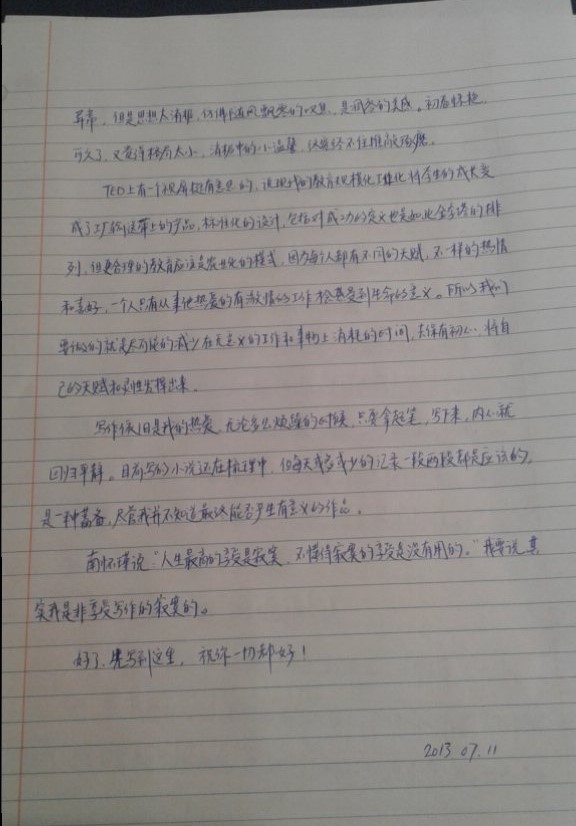 异常，但是思想太消极，仿佛随风飘零的叹息，是凋零的美感。初看惊艳，
可久了，又觉得格局太小，消极中的小温馨，认真经不住推敲琢磨。
TED上有一个视屏挺有意思的，说现代的教育规模化工业化将学生的成长变
成了工厂输送带上的产品，标准化的设计，包括对成功的定义也是如此金字塔的排
列，但更合理的教育应该是农业化的模式，因为每个人都有不同的天赋，不一样的热情
和喜好，一个人只有从事他热爱的有激情的工作才会感受到生命的意义。所以我们
要做的就是尽可能的减少在无意义的工作和事物上消耗的时间，去保有初心，将自
己的天赋和灵性发挥出来。
写作依旧是我的热爱，无论多么烦躁的时候，只要拿起笔，写下来，内心就
回归平静。目前写的小说还在梳理中，但每天或多或少的记录一段两段都是应该的，
是一种蓄备，尽管我并不知道最终能否产生有意义的作品。
南怀瑾说“人生最高的享受是寂寞，不懂得寂寞的享受是没有用的。”我要说其
实我是非享受写作的寂寞的。
好了，先写到这里，祝你一切都好！
2013.07.11